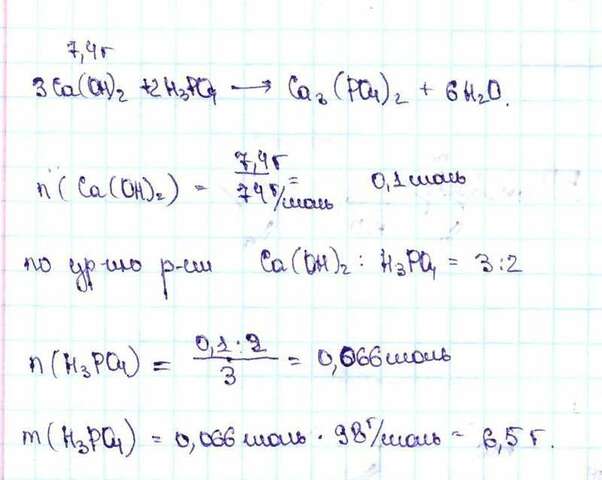 7,4г
3Ca(OH)₂ + 2H₃PO₄ ⟶ Ca₃(PO₄)₂ + 6H₂O.
n(Ca(OH)₂) = 7,4г / 74г/моль = 0,1 моль
по ур-ию р-ии Ca(OH)₂ : H₃PO₄ = 3:2
n(H₃PO₄) = 0,1:2 / 3 = 0,066 моль
m(H₃PO₄) = 0,066 моль · 98г/моль = 6,5г.